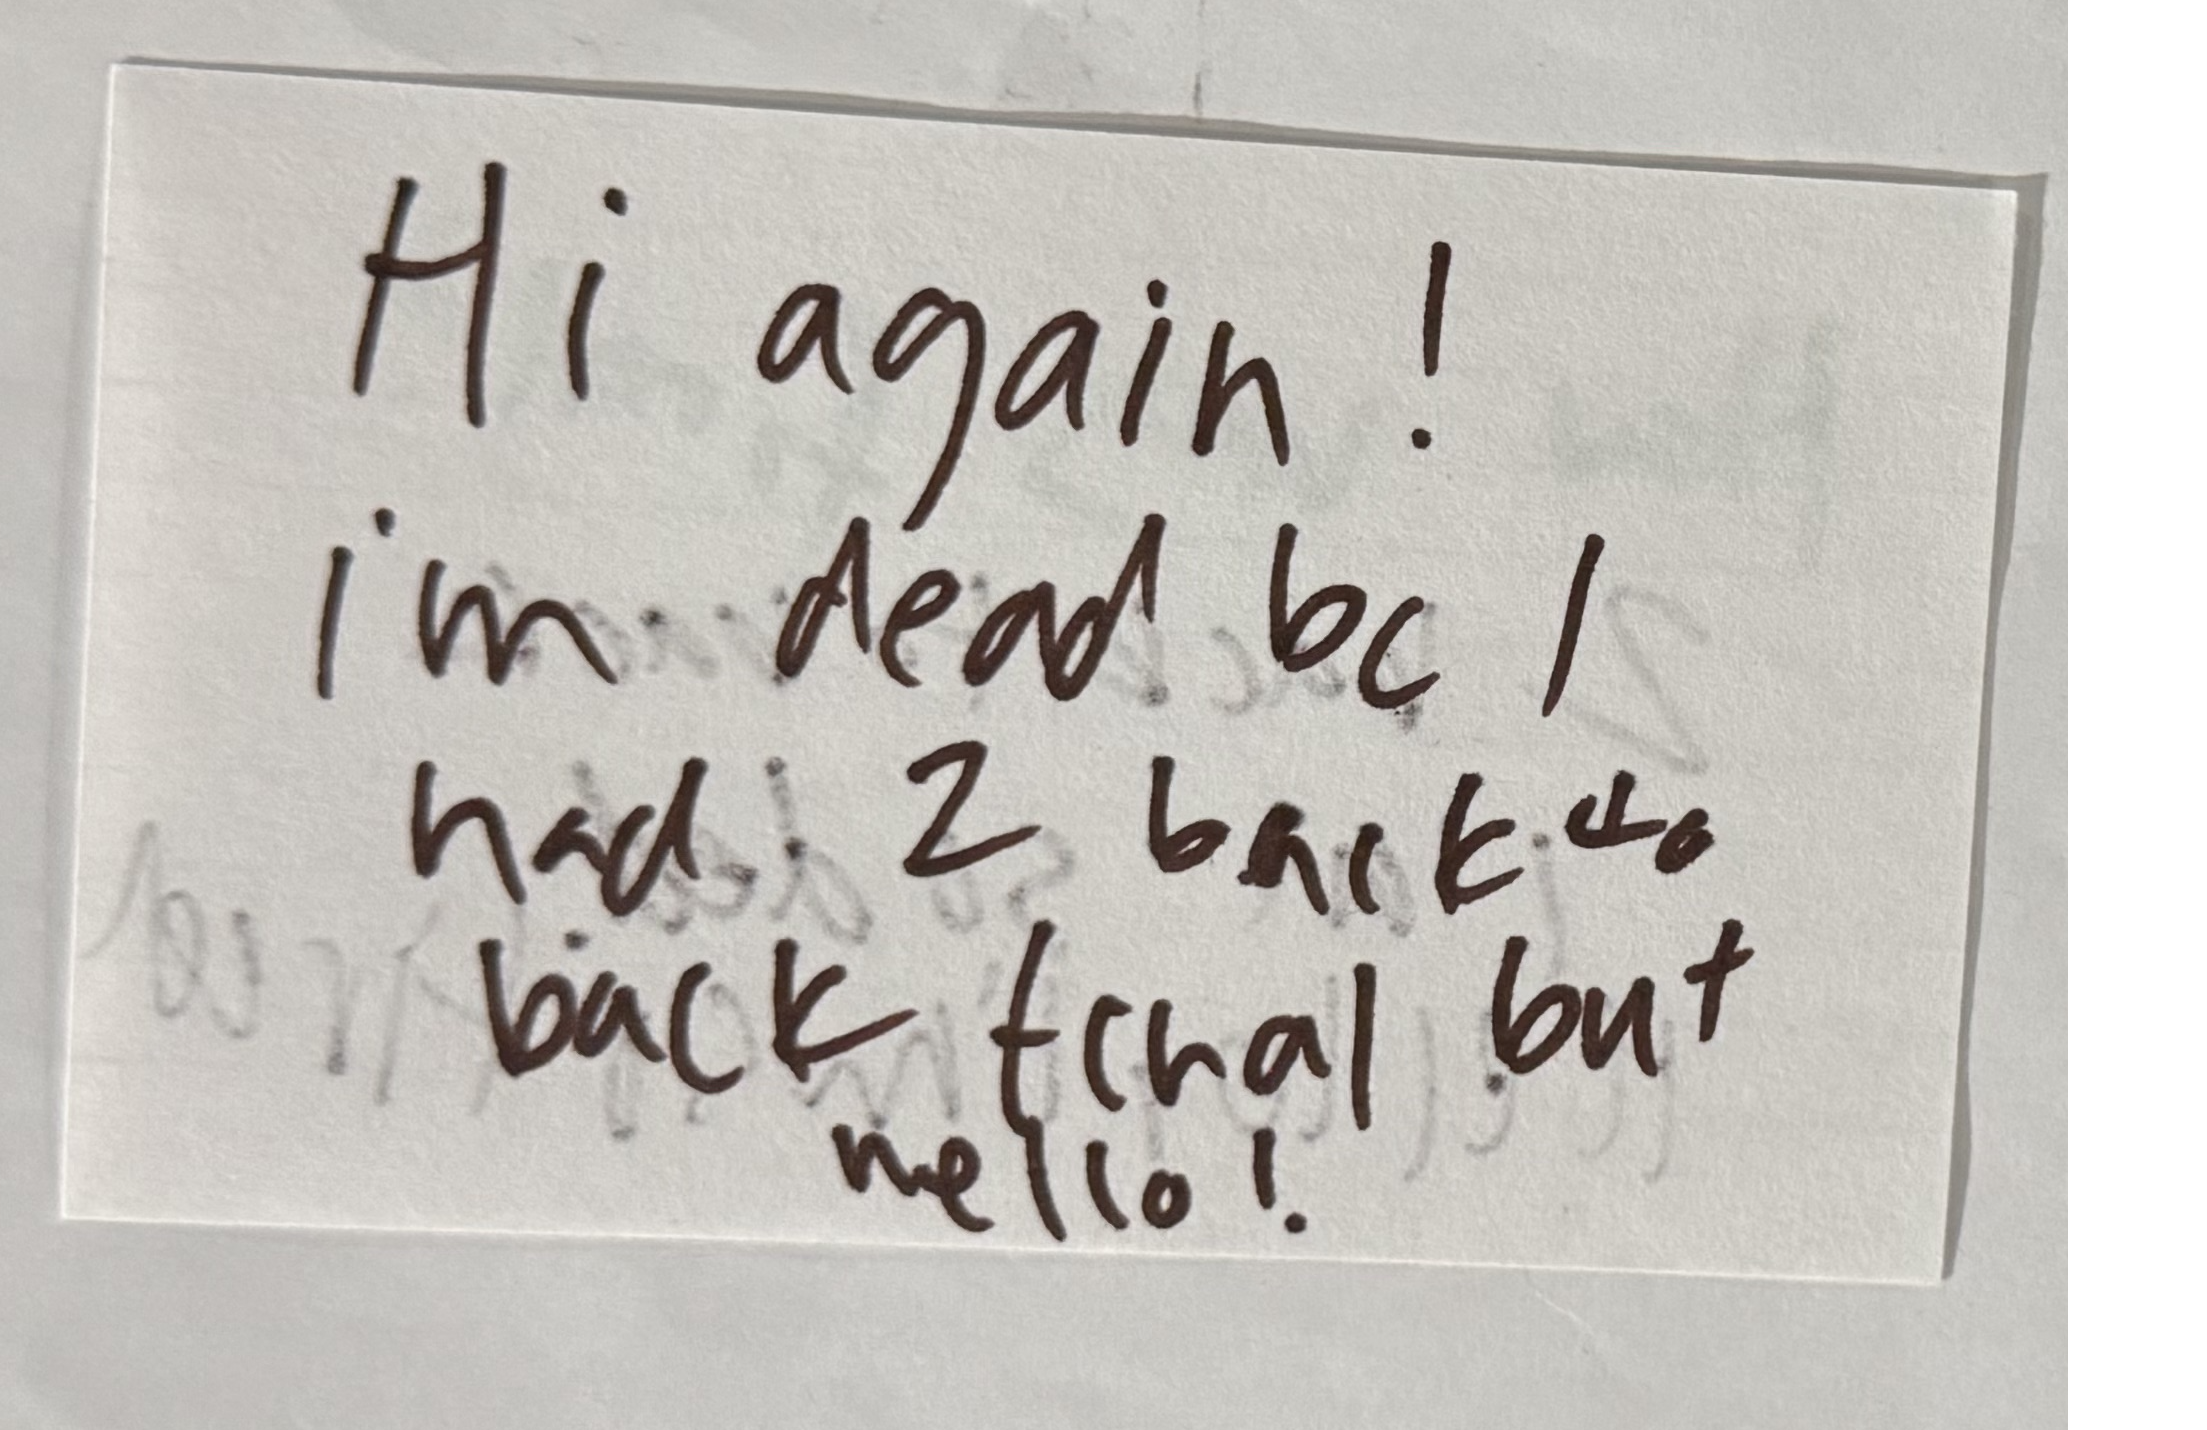 Hi again!
i'm dead bc I
had 2 back to
back final but
hello!